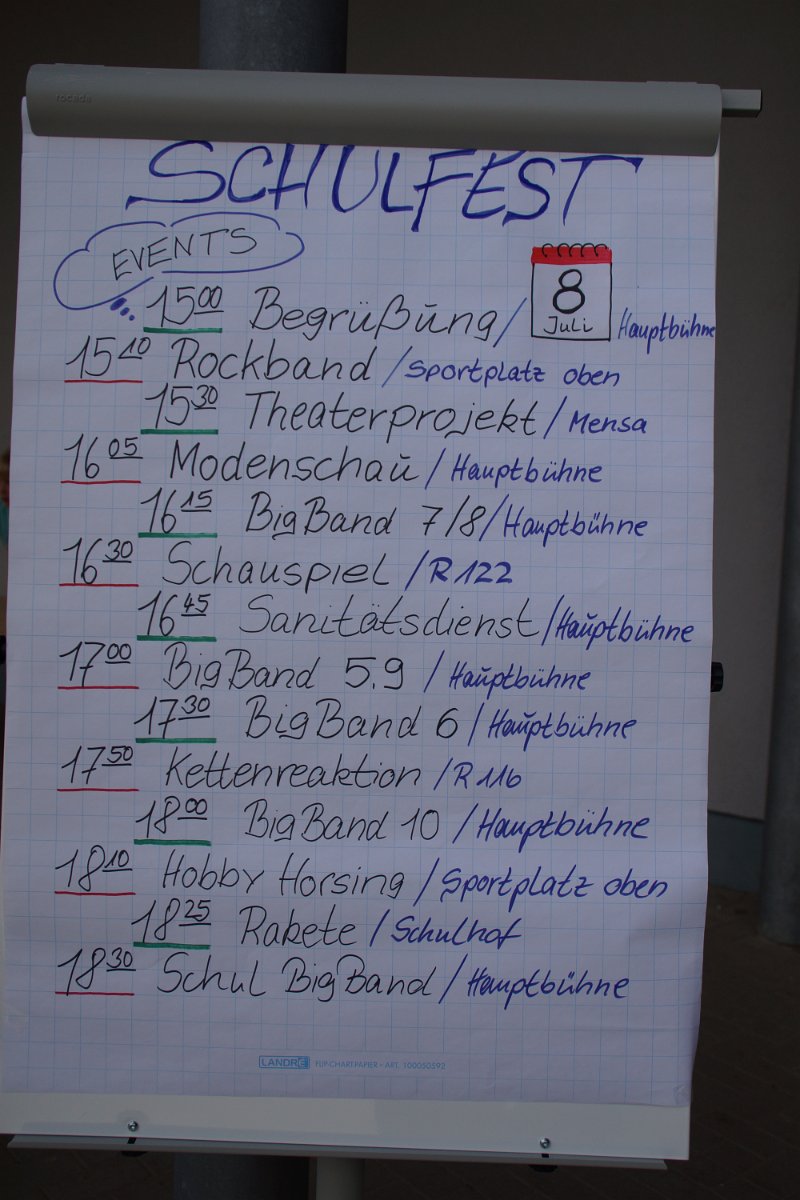 rocada
SCHULFEST
EVENTS
8
Juli
15 00 Begrüßung / Hauptbühne
15 10 Rockband / Sportplatz oben
15 30 Theaterprojekt / Mensa
16 05 Modenschau / Hauptbühne
16 15 BigBand 7/8 / Hauptbühne
16 30 Schauspiel / R 122
16 45 Sanitätsdienst / Hauptbühne
17 00 BigBand 5.9 / Hauptbühne
17 30 BigBand 6 / Hauptbühne
17 50 Kettenreaktion / R 116
18 00 BigBand 10 / Hauptbühne
18 10 Hobby Horsing / Sportplatz oben
18 25 Rakete / Schulhof
18 30 Schul BigBand / Hauptbühne
LANDRÉ FLIP-CHARTPAPIER • ART. 100050592